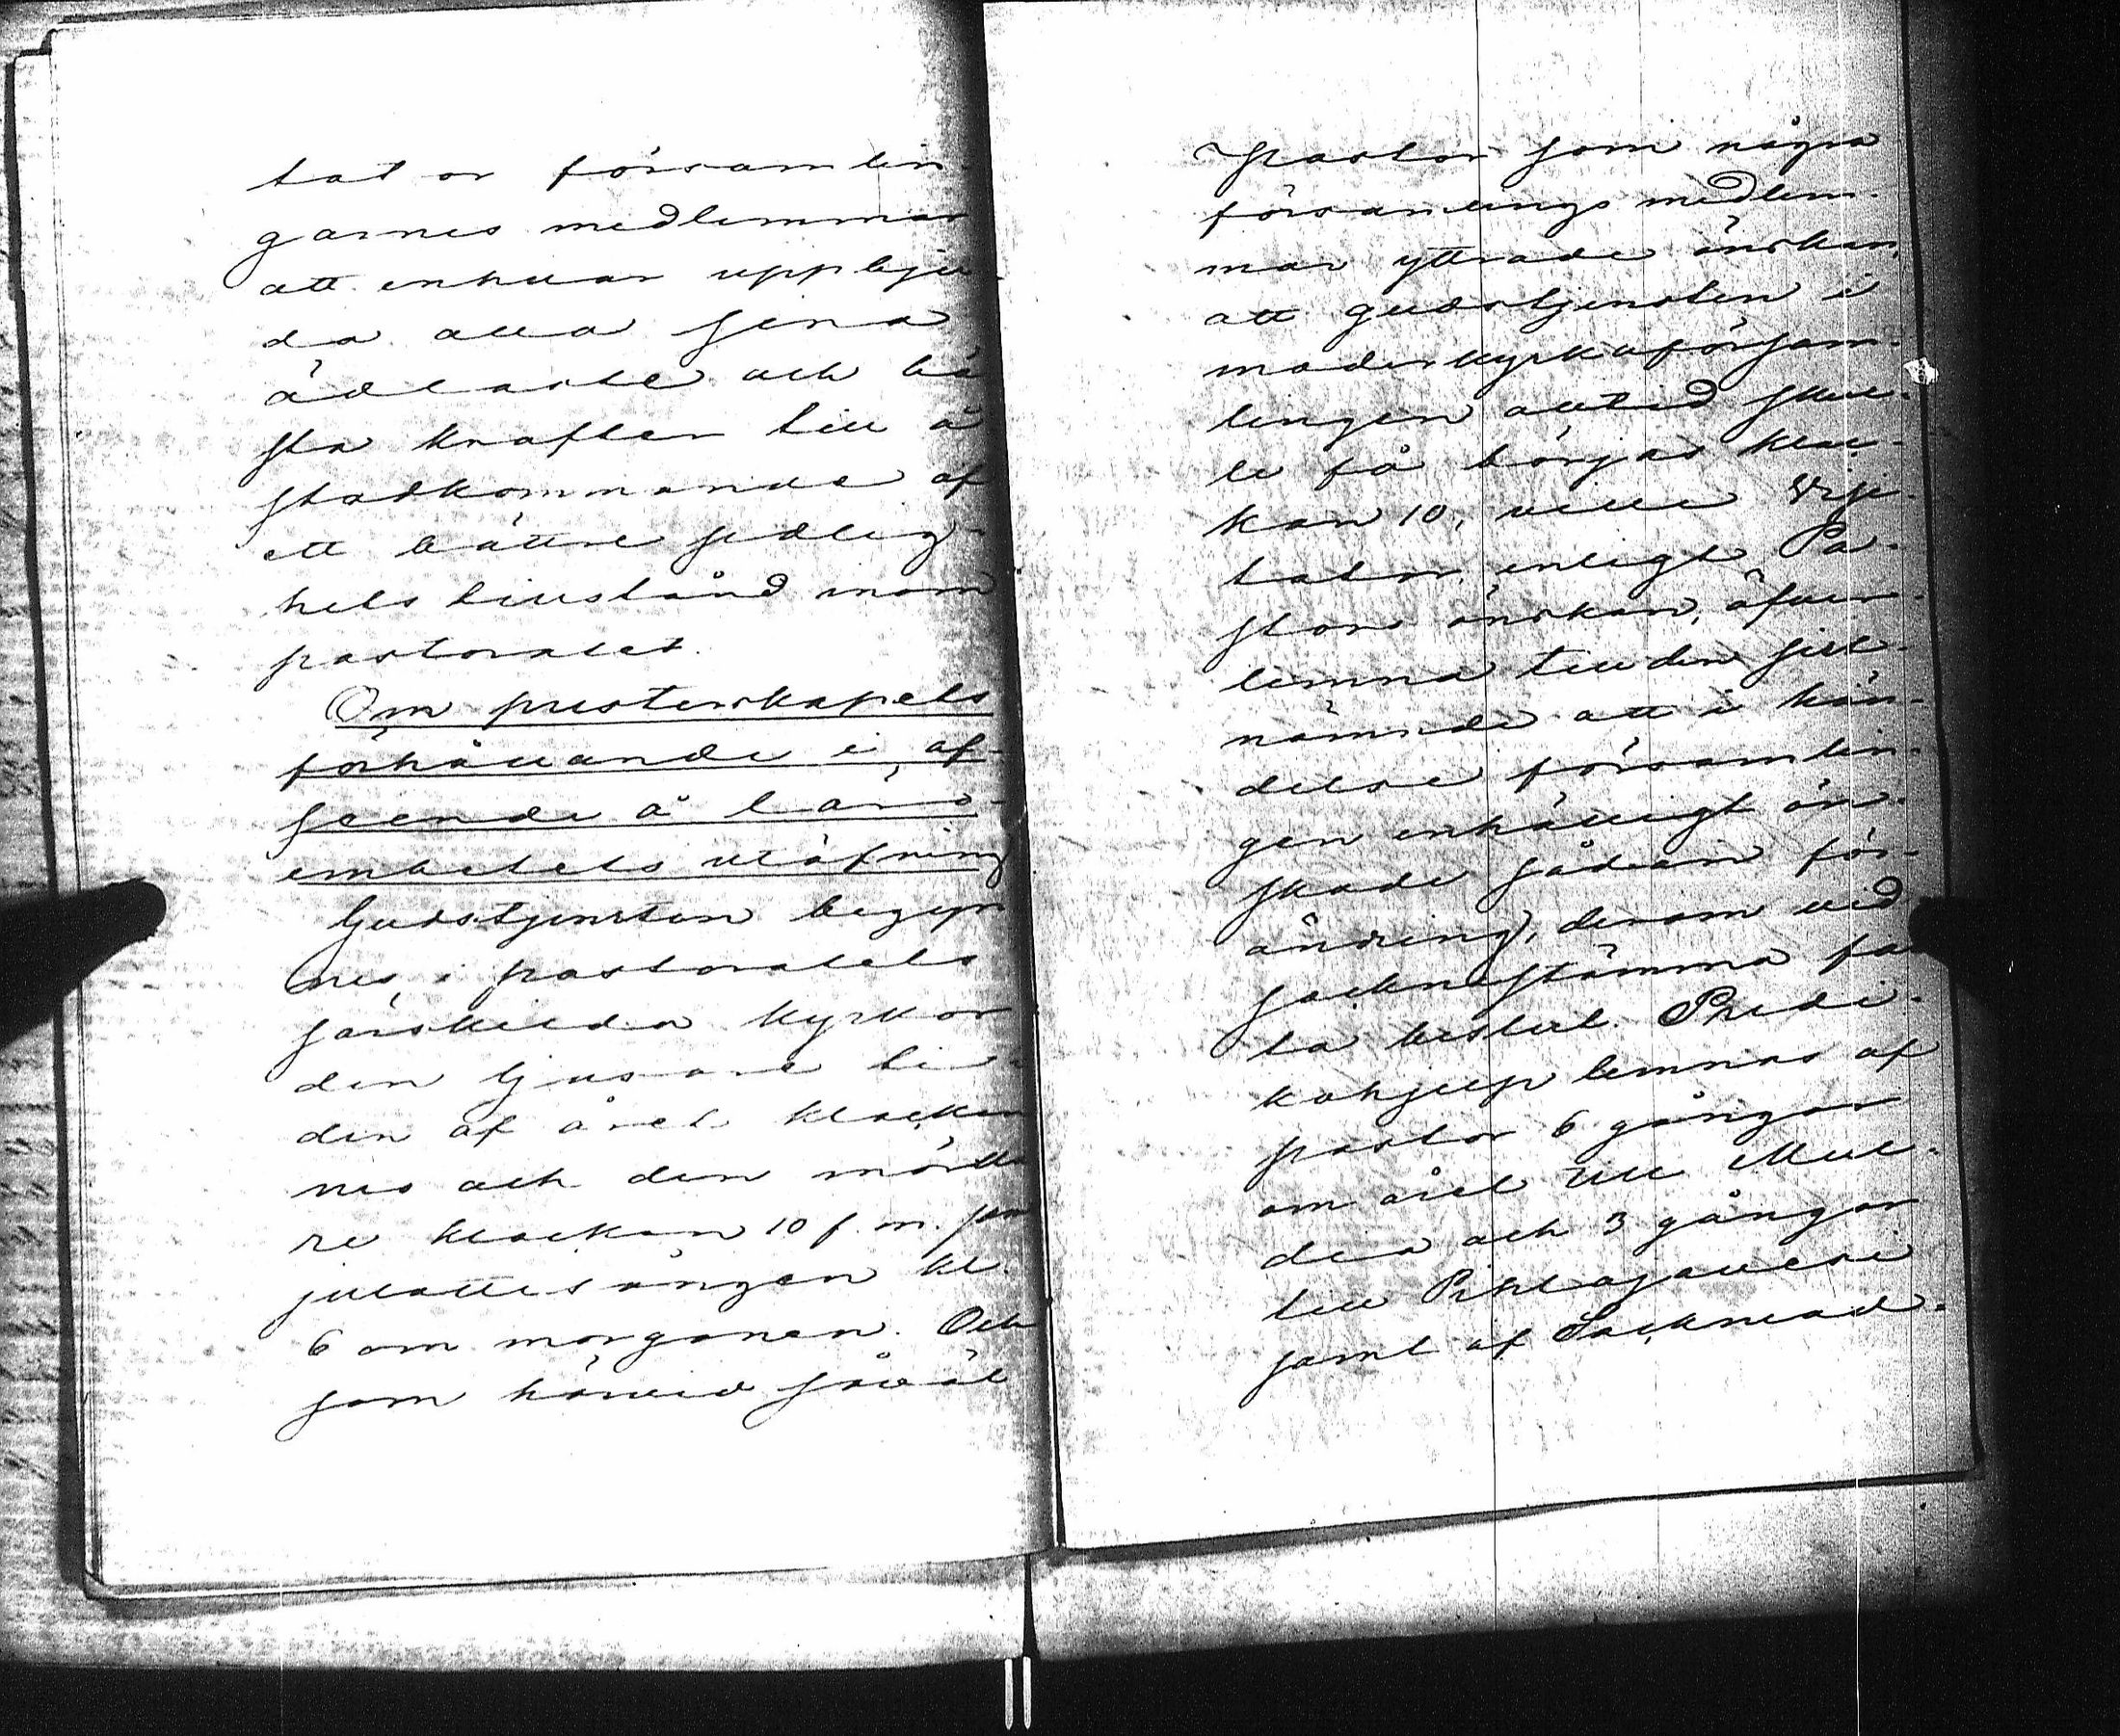 tator församlin-
garnes medlemmar
att enhvar uppbju-
da alla sina
ädlaste och bä
sta krafter till å
stadkommande af
ett bättre sedlig-
hets tillstånd inom
pastoratet.
Om presterskapets
förhållande i af-
seende å läro-
embetets utöfning
Gudstjensten begyn
nes i pastoratets
särskilda kyrkor
den ljusare ti-
den af året klockan
nio och den mörka
re klockan 10 f.m. samt
julottesången kl.
6 om morgonen. Och
som härvid såväl
Pastor som några
församlings medlem-
mar yttrade önskan,
att gudstjensten i
moderkyrkoförsam-
lingen alltid skul-
le få börjas kloc-
kan 10, ville Visi-
tator, enligt Pa-
stors önskan, öfver-
lemna till den sist-
nämnde att i hän-
delse församlin-
gen enhälligt ön-
skade sådan för-
ändring, derom vid
socknestämma fat-
ta beslut. Predi-
kohjelp lemnas af
pastor 6 gånger
om året till Mul-
dia och 3 gånger
till Pihlajavesi
samt af Socknead-